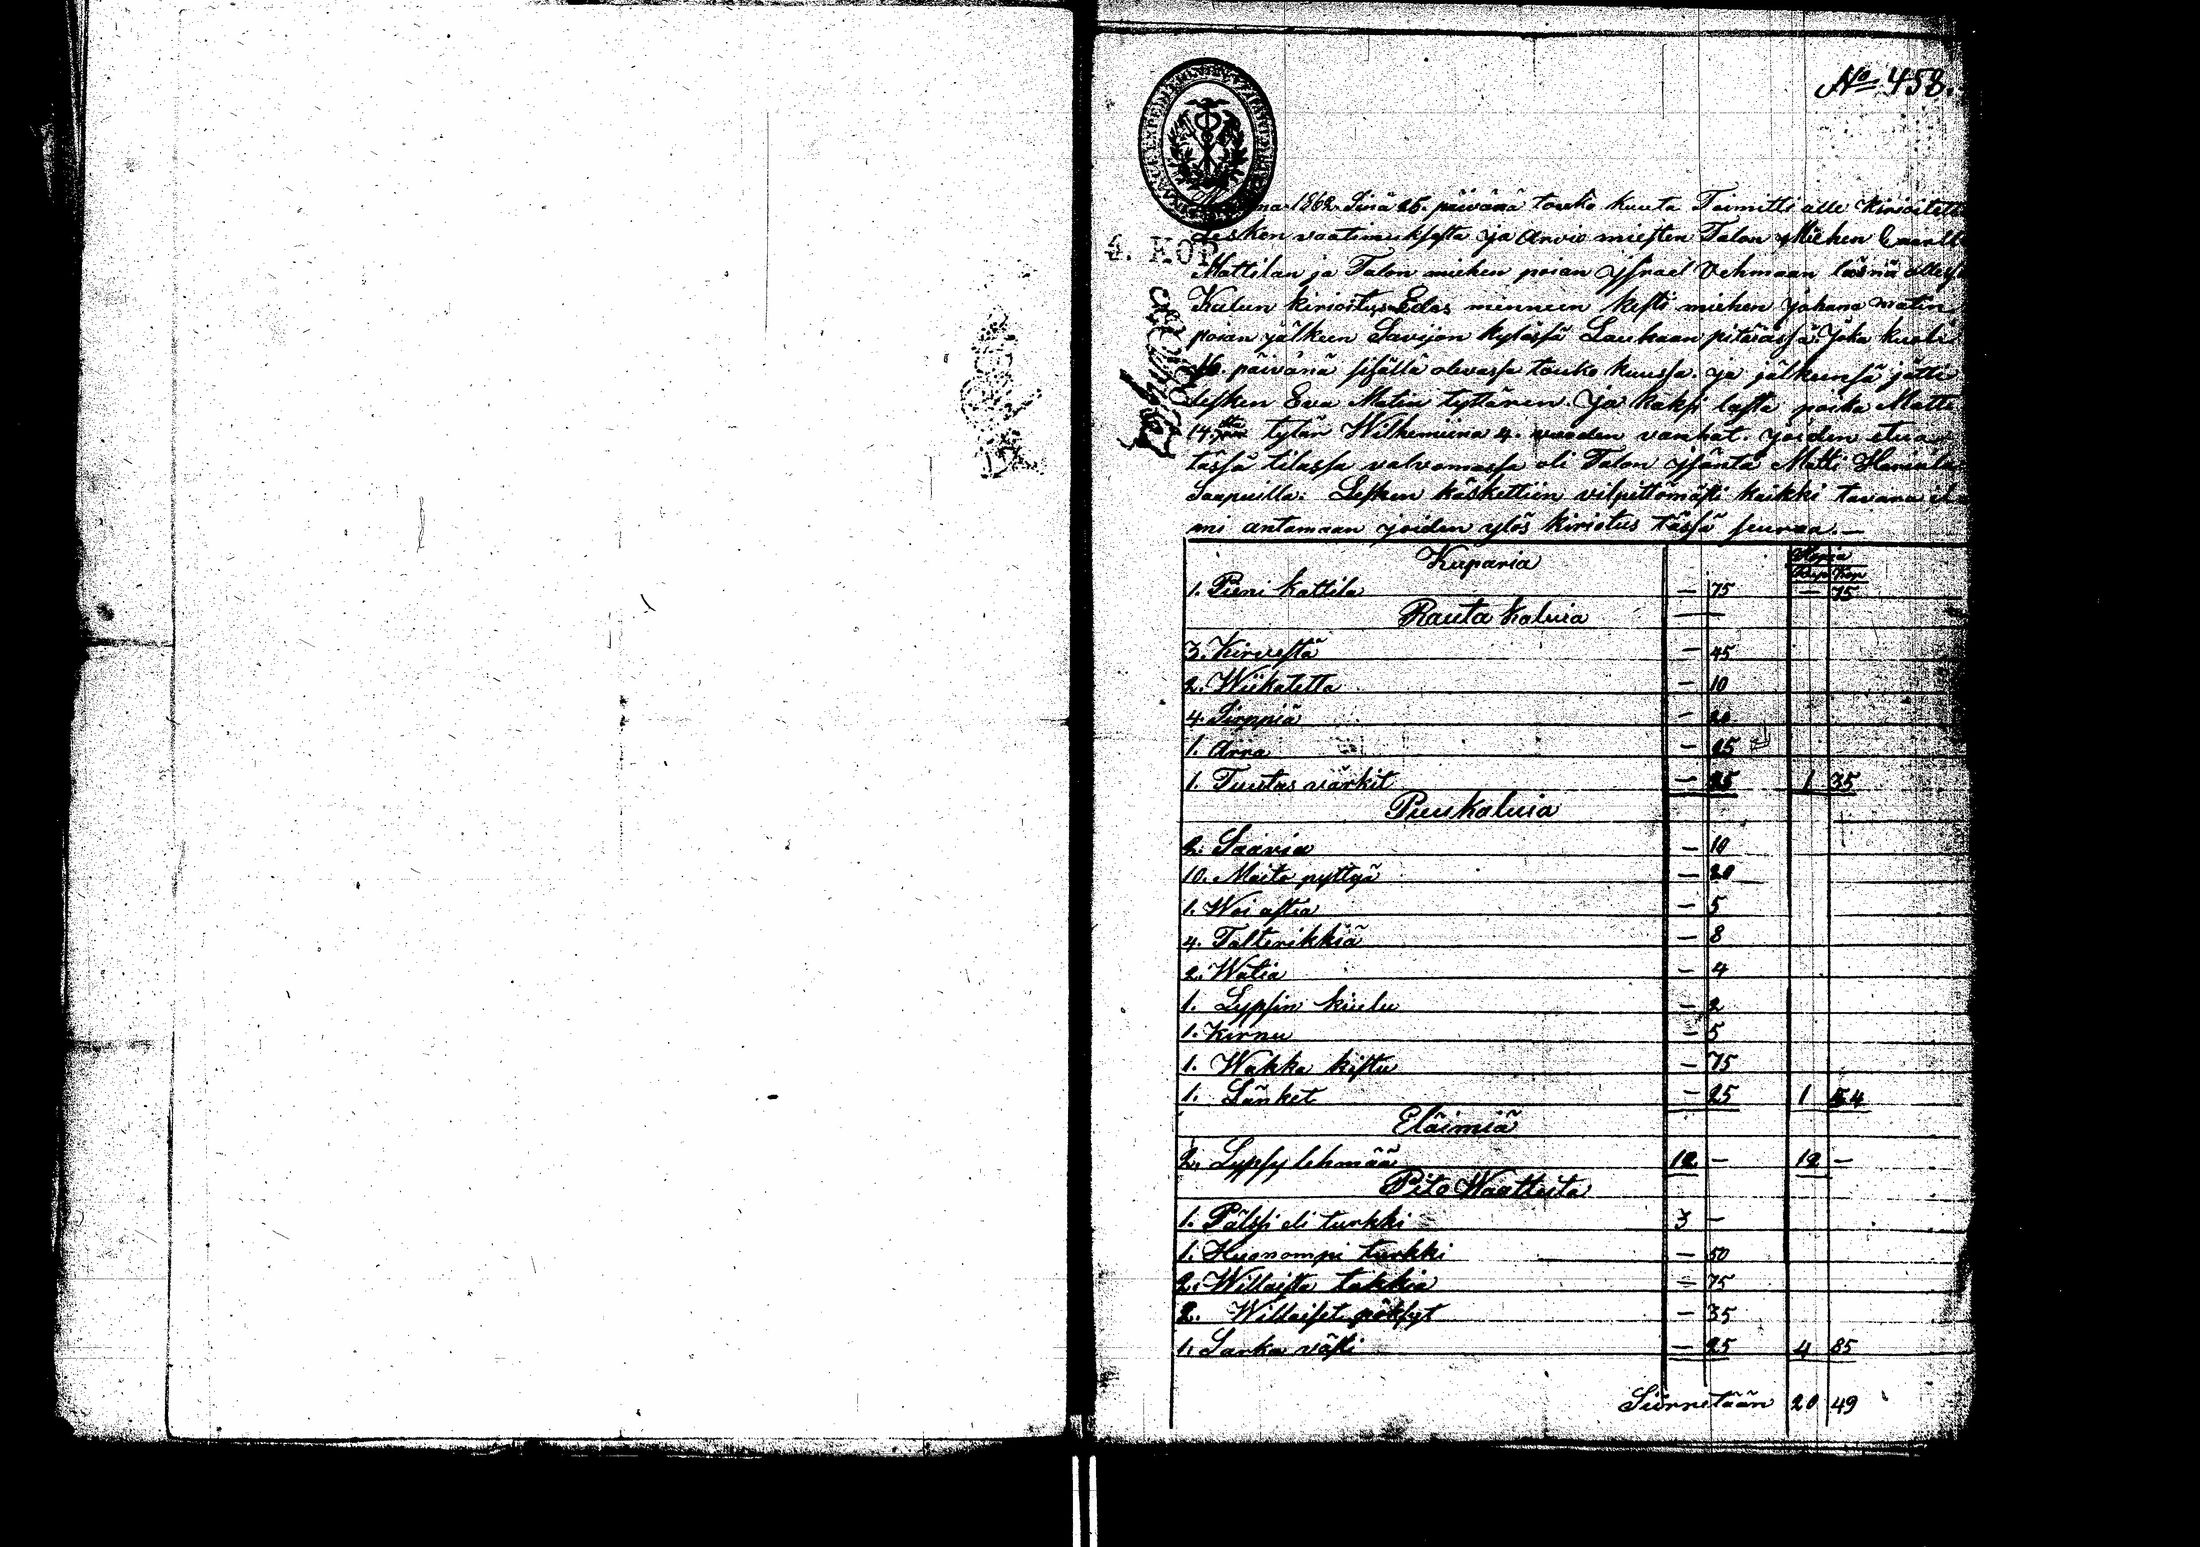 No 458.
1862 Sinä 25. päivänä touko kuuta Toimitti alle Kirioitettu
lesken vaatimuksesta ja arvio miesten Talon Miehen
4. KOP.
Mattilan ja Talon miehen poian Ysrael Vehmaan läsnä
Kalun kirioitus Edes menneen kesti miehen Johana matin
poian jälkeen Savijon kylässä Laukaan pitäiässä. Joka kuoli
16. päivänä sisällä olevassa touko kuussa. ja jälkeensä jätti
Lesken Eva Matin tyttären. Ja kaksi lasta poika Matti
14. tytär Wilhemiina 4. vuoden vanhat. joiden etua
tässä tilassa valvomassa oli Talon ysäntä Matti
Saapuilla: Lesken käskettiin vilpittömästi kaikki tavara
mi antamaan joiden ylös kiriotus tässä seuraa.—
Kuparia Hopia
Rup. Kop.
1. Pieni kattila — 75 — 75
Rauta kaluia —
3. Kirvestä — 45
2. Wiikatetta — 10
4. Sirppiä — 20
1. Arra — 25
1. Tuutas värkit — 35 1 35
Puukaluia
2. Saavia — 10
10. Maito pyttyä — 20
1. Woi astia — 5
4. Talterikkiä — 8
2. Watia — 4
1. Lypsin kiulu — 2
1. Kirnu — 5
1. Wakka kistu — 75
1. Länket — 25 1 54
Eläimiä
2. Lypsy lehmää 12 — 12 —
Pito Waatteita
1. Pälssi eli turkki 3 —
1. Huonompi turkki — 50
2. Willaista takkia — 75
2. Willaiset pöksyt — 35
1. Sarka västi — 25 4 85
Siirretään 20 49